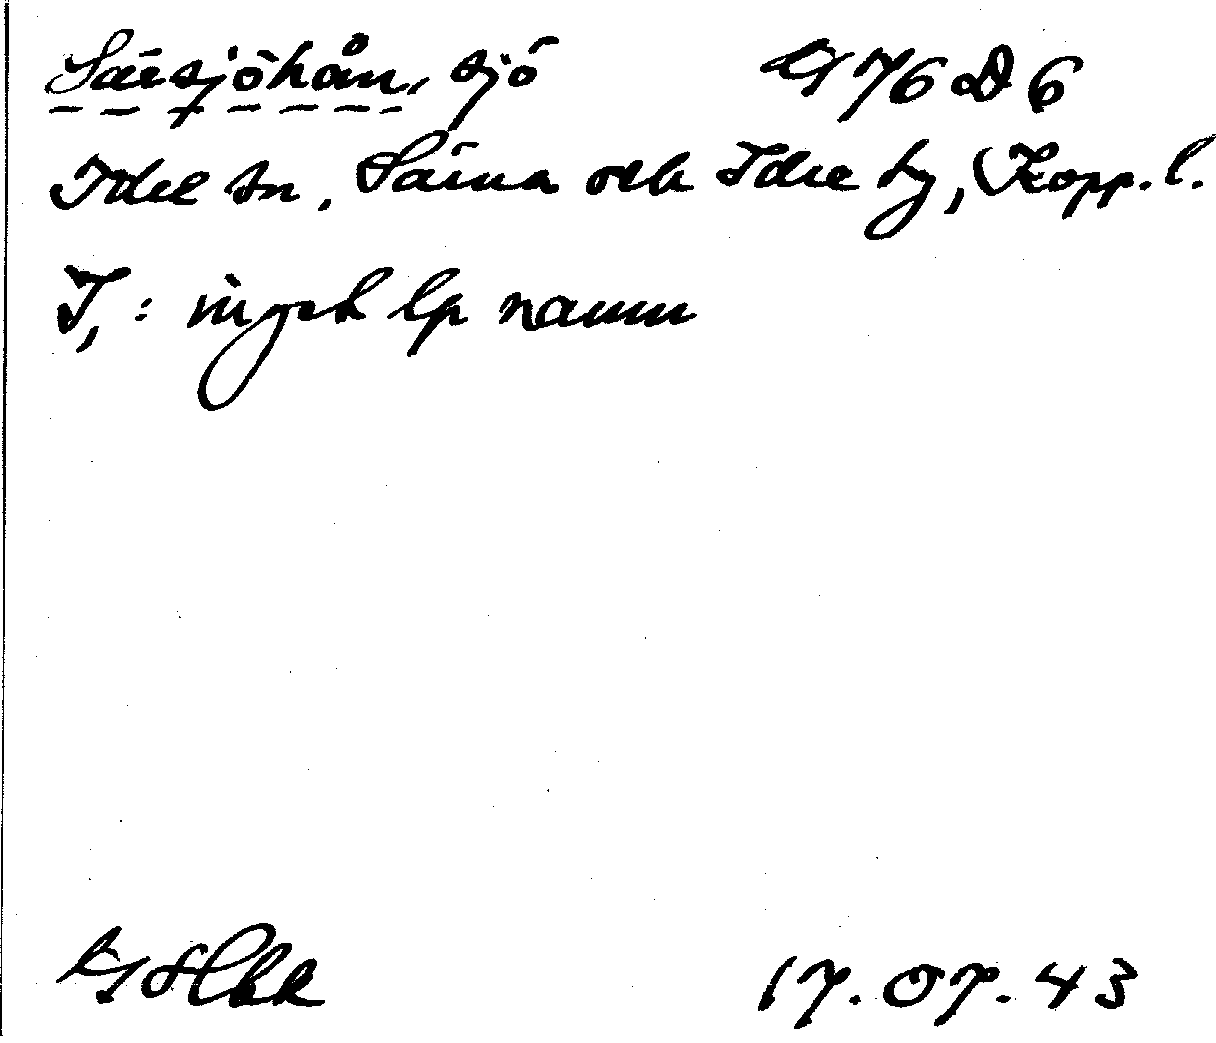 Särsjöhån, sjö G 76 D 6
Idre sn, Särna och Idre by, Kopp. l.
I, : inget lp namn
17.07.43